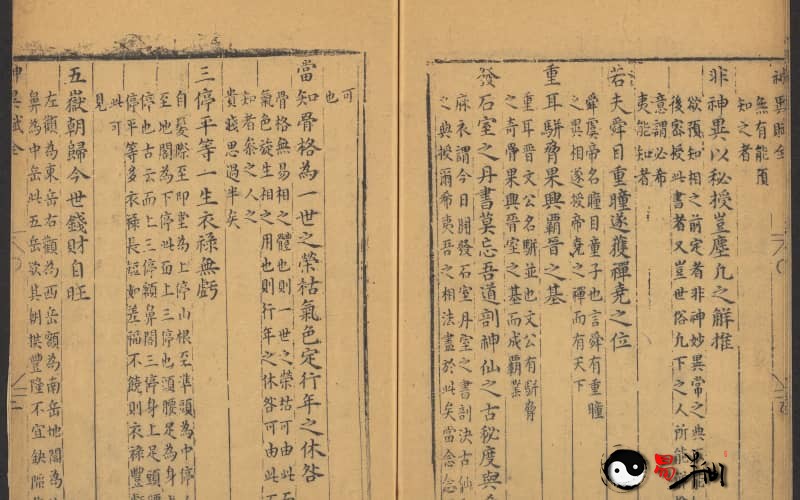 神異賦全
無有能預
知之者
非神異以秘授豈塵凡之解推
欲預知相之前定者非神妙異常之典
後密授此書者又豈世俗凡下之人所能
意謂必希
夷能知者
若夫舜目重瞳遂獲禪堯之位
舜虞帝名瞳目童子也言舜有重瞳
之異相遂授帝堯之禪而有天下
重耳駢脅果興覇晉之基
重耳晉文公名駢並也文公有駢脅
之奇骨果興晉室之基而成覇業
發石室之丹書莫忘吾道剖神仙之古秘度與
麻衣謂今日開發石室丹室之書剖決古仙
之典授希夷吾之相法盡於此矣當念念
可
也
當知骨格為一世之榮枯氣色定行年之休咎
骨格無易相之體也則一世之榮枯可由此而
氣色旋生相之用也則行年之休咎可由此
知者泰之人之
貴賤思過半矣
三停平等一生衣祿無虧
自髮際至印堂為上停山根至準頭為中停
至地閣為下停此面上三停也頭腰足為身
停也古云面上三停額鼻閣三停身上足頭
停平等多衣祿長短如差福不饒則衣祿豐
此可
見
五嶽朝歸今世錢財自旺
左顴為東岳右顴為西岳額為南岳地閣為
鼻為中岳此五岳欲其朝拱豐隆不宜缺陷
神異賦全
易